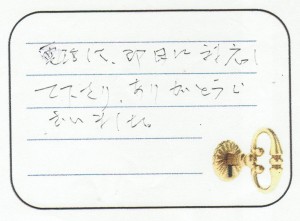 電話で、即日に対応し
て下さり、ありがとうご
ざいました。